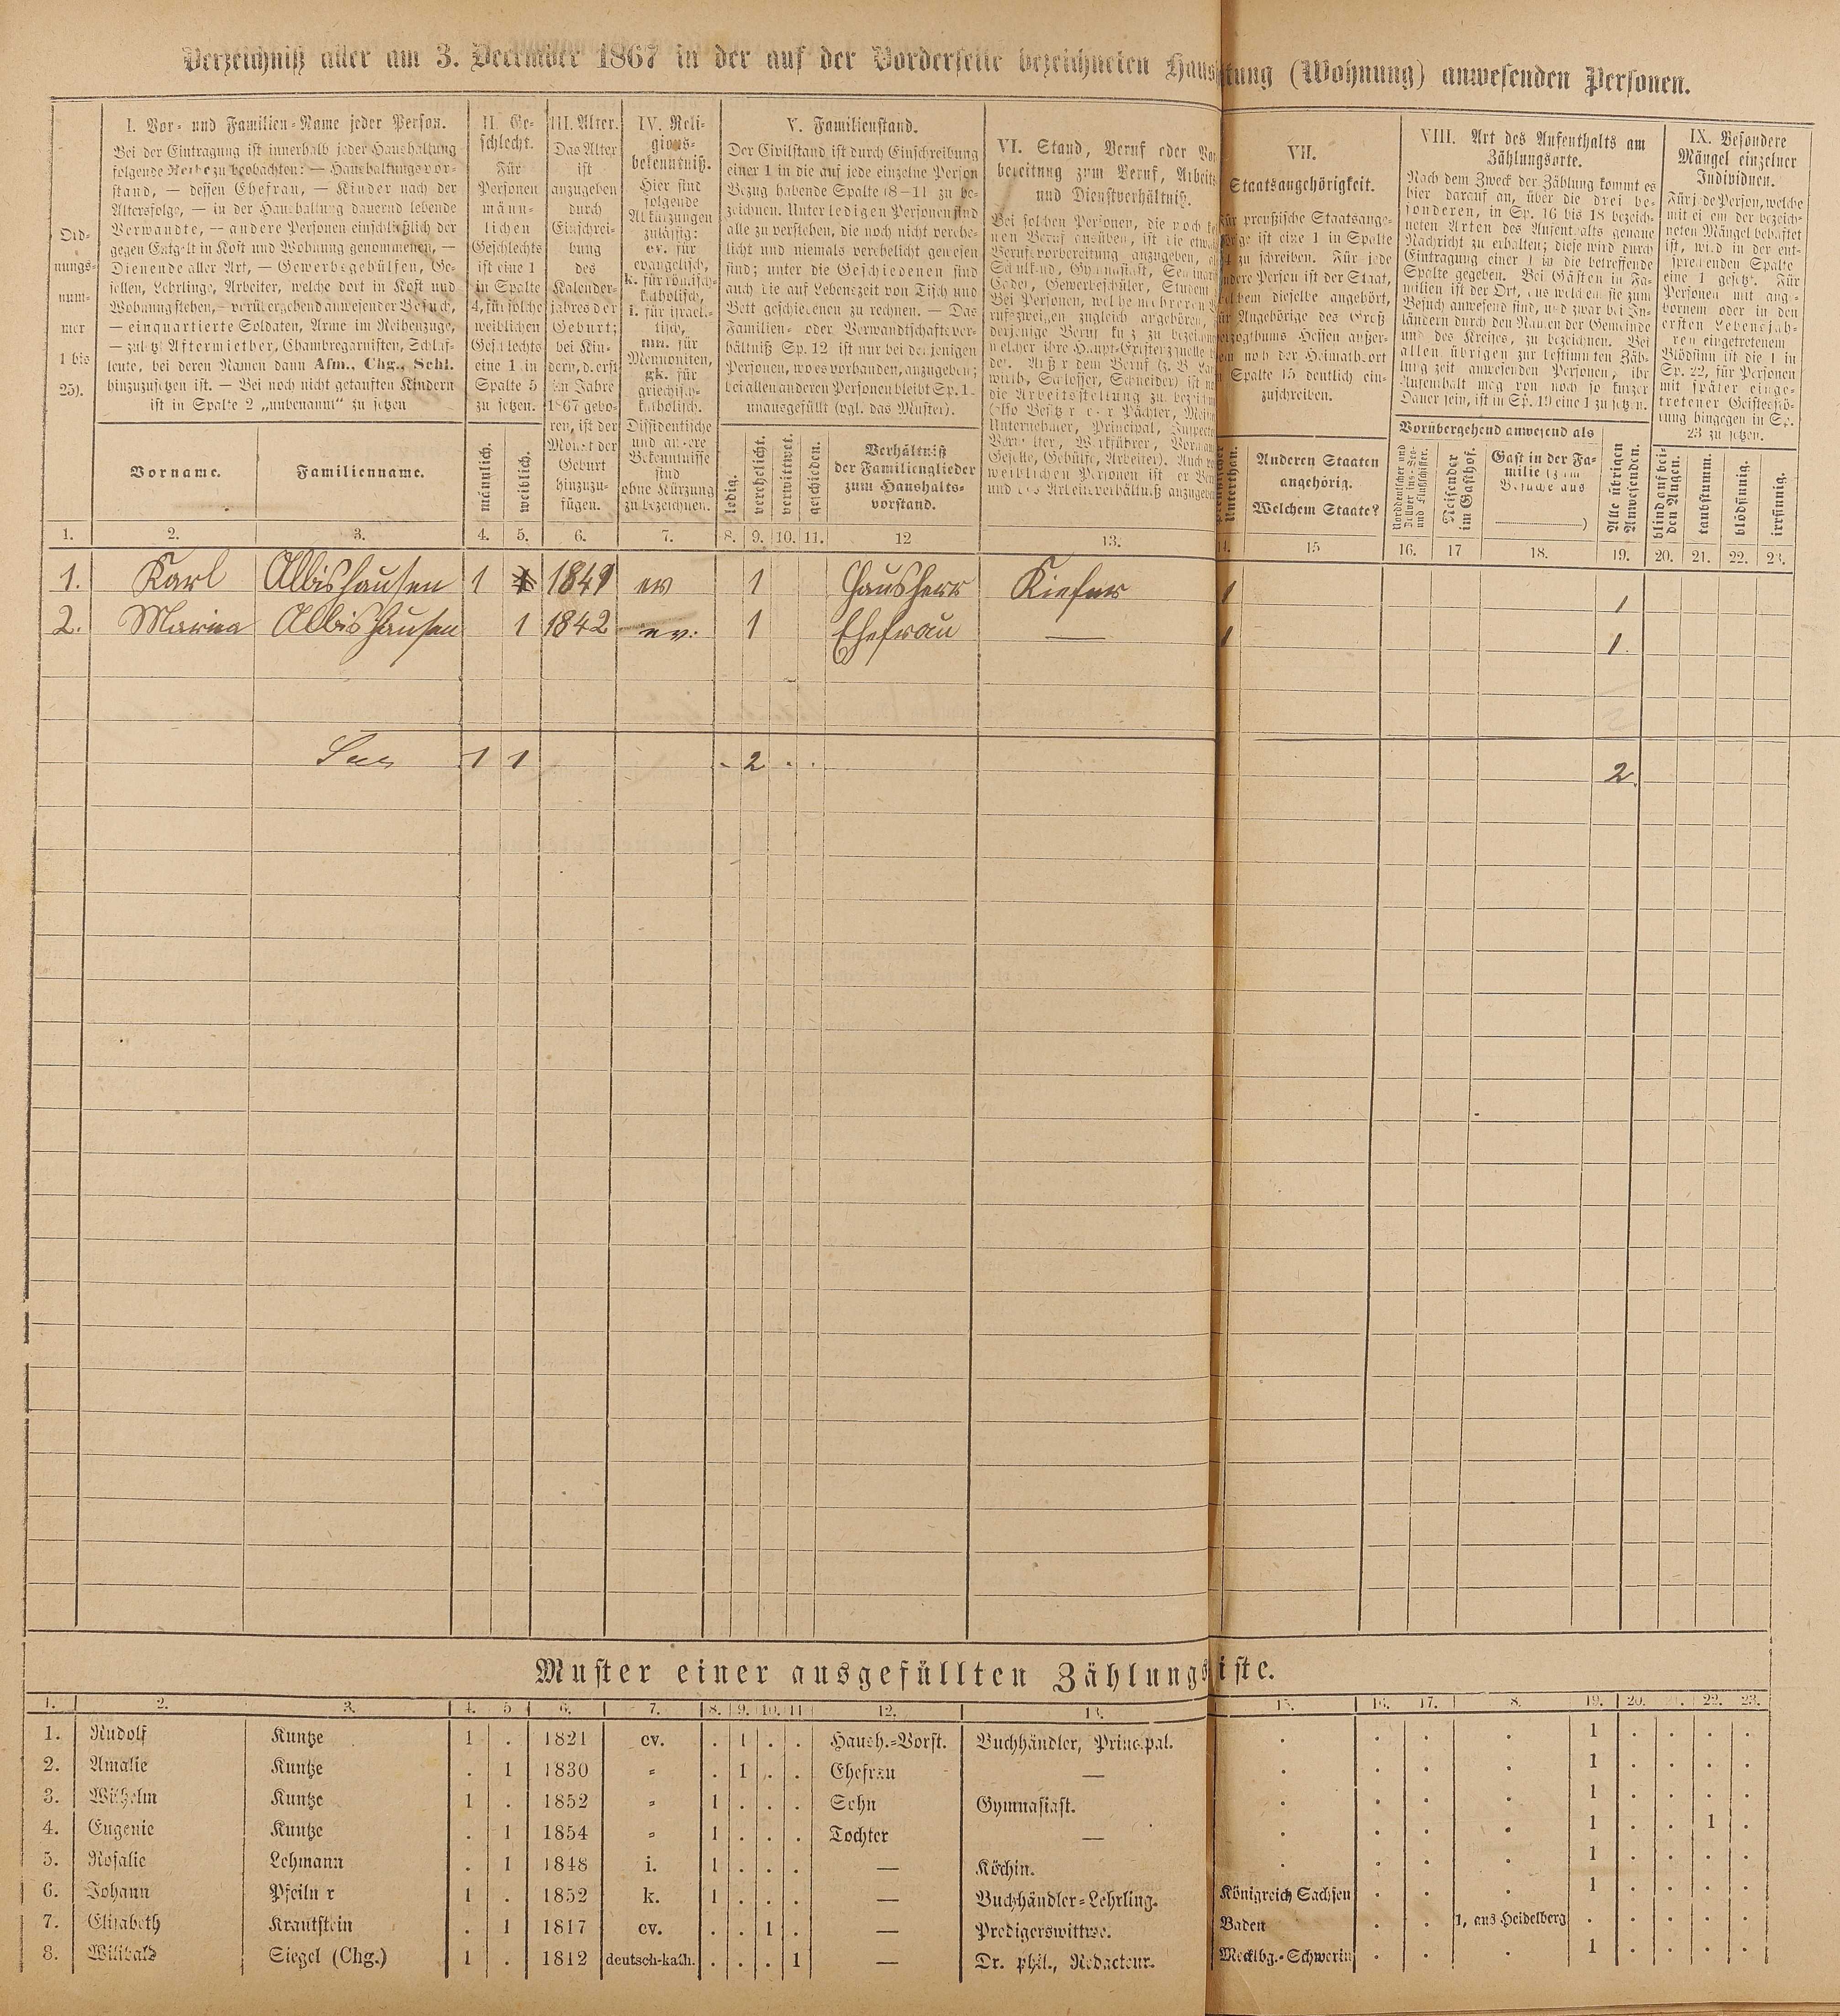 Verzeichniß aller am 3. December 1867 in der auf der Vorderseite bezeichneten Haus tung (Wohnung) anwesenden Personen.
Ord-
nungs-
num-
mer
1 bis
25).
I. Vor- und Familien-Name jeder Person.
Bei der Eintragung ist innerhalb jeder Haushaltung
folgende Reihe zu beobachten: — Haushaltungsvor-
stand, — dessen Ehefrau, — Kinder nach der
Altersfolge, — in der Haushaltung dauernd lebende
Verwandte, — andere Personen einschließlich der
gegen Entgelt in Kost und Wohnung genommenen, —
Dienende aller Art, — Gewerbsgehülfen, Ge-
sellen, Lehrlinge, Arbeiter, welche dort in Kost und
Wohnung stehen, — vorübergehend anwesender Besuch,
— einquartierte Soldaten, Arme im Reihenzuge,
— zuletzt Aftermiether, Chambregarnisten, Schlaf-
leute, bei deren Namen dann Afm., Chg., Schl.
hinzuzusetzen ist. — Bei noch nicht getauften Kindern
ist in Spalte 2 „unbenannt“ zu setzen
Vorname.
Familienname.
II. Ge-
schlecht.
Für
Personen
männ-
lichen
Geschlechts
ist eine 1
in Spalte
4, für solche
weiblichen
Geschlechts
eine 1 in
Spalte 5
zu setzen.
männlich.
weiblich.
III. Alter.
Das Alter
ist
anzugeben
durch
Einschrei-
bung
des
Kalender-
jahres der
Geburt;
bei Kin-
dern, d. erst
im Jahre
1867 gebo-
ren, ist der
Monat der
Geburt
hinzuzu-
fügen.
IV. Reli-
gions-
bekenntniß.
Hier sind
folgende
Abkürzungen
zulässig:
ev. für
evangelisch,
k. für römisch-
katholisch,
i. für israeli-
tisch,
mn. für
Mennoniten,
gk. für
griechisch-
katholisch.
Dissidentische
und andere
Bekenntnisse
sind
ohne Kürzung
zu bezeichnen.
V. Familienstand.
Der Civilstand ist durch Einschreibung
einer 1 in die auf jede einzelne Person
Bezug habende Spalte (8—11) zu be-
zeichnen. Unter ledigen Personen sind
alle zu verstehen, die noch nicht verehe-
licht und niemals verehelicht gewesen
sind; unter die Geschiedenen sind
auch die auf Lebenszeit von Tisch und
Bett geschiedenen zu rechnen. — Das
Familien- oder Verwandtschaftsver-
hältniß Sp. 12 ist nur bei denjenigen
Personen, wo es vorhanden, anzugeben;
bei allen anderen Personen bleibt Sp. 1
unausgefüllt (vgl. das Muster).
ledig.
verehelicht.
verwittwet.
geschieden.
Verhältniß
der Familienglieder
zum Haushalts-
vorstand.
VI. Stand, Beruf oder Vor
bereitung zum Beruf, Arbeits
und Dienstverhältniß.
VII.
Staatsangehörigkeit.
für preußische Staatsange-
ist eine 1 in Spalte
zu schreiben. Für jede
andere Person ist der Staat,
welchem dieselbe angehört,
für Angehörige des Groß
herzogthums Hessen außer-
dem noch der Heimathsort
in Spalte 15 deutlich ein-
zuschreiben.
Unterthan.
Anderen Staaten
angehörig.
Welchem Staate?
VIII. Art des Aufenthalts am
Zählungsorte.
Nach dem Zweck der Zählung kommt es
hier darauf an, über die drei be-
sonderen, in Sp. 16 bis 18 bezeich-
neten Arten des Aufenthalts genaue
Nachricht zu erhalten; diese wird durch
Eintragung einer 1 in die betreffende
Spalte gegeben. Bei Gästen in Fa-
milien ist der Ort, aus welchem sie zum
Besuch anwesend sind, und zwar bei In-
ländern durch den Namen der Gemeinde
und des Kreises, zu bezeichnen. Bei
allen übrigen zur bestimmten Zäh-
lungszeit anwesenden Personen, ihr
Aufenthalt mag von noch so kurzer
Dauer sein, ist in Sp. 19 eine 1 zu setzen.
Vorübergehend anwesend als
Norddeutscher und
Zollver ins-See-
und Flußschiffer.
Reisender
im Gasthof.
Gast in der Fa-
milie (zum
Besuche aus
)
Alle übrigen
Anwesenden.
IX. Besondere
Mängel einzelner
Individuen.
Für jede Person, welche
mit einem der bezeich-
neten Mängel behaftet
ist, wird in der ent-
sprechenden Spalte
eine 1 gesetzt. Für
Personen mit ange-
bornem oder in den
ersten Lebensjah-
ren eingetretenem
Blödsinn ist die 1 in
Sp. 22, für Personen
mit später einge-
tretener Geistesstö-
rung hingegen in Sp.
23 zu setzen.
blind auf bei-
den Augen.
taubstumm.
blödsinnig.
irrsinnig.
1. 2. 3. 4. 5. 6. 7. 8. 9. 10. 11. 12 13. 14. 15 16. 17 18. 19. 20. 21. 22. 23.
1. Karl Albishausen 1 1849 ev 1 Hausherr Kiefer 1 1
2. Marina Albishausen 1 1842 ev. 1 Ehefrau — 1 1.
1 1 2 2
Muster einer ausgefüllten Zählungs iste.
1. 2. 3. 4. 5 6. 7. 8. 9. 10. 11 12. 13. 15. 16. 17. 8. 19. 20. 21. 22. 23.
1. Rudolf Kuntze 1 . 1821 ev. . 1 . . Haush.-Vorst. Buchhändler, Principal. . . . . 1 . . . .
2. Amalie Kuntze . 1 1830 " . 1 . . Ehefrau — . . . . 1 . . . .
3. Wilhelm Kuntze 1 . 1852 " 1 . . . Sohn Gymnasiast. . . . . 1 . . . .
4. Eugenie Kuntze . 1 1854 " 1 . . . Tochter — . . . . 1 . . 1 .
5. Rosalie Lehmann . 1 1848 i. 1 . . . — Köchin. . . . . 1 . . . .
6. Johann Pfeiln r 1 . 1852 k. 1 . . . — Buchhändler-Lehrling. Königreich Sachsen . . . 1 . . . .
7. Elisabeth Krautstein . 1 1817 ev. . . 1 . — Predigerswittwe. Baden . . 1, aus Heidelberg . . . . .
8. Wilibald Siegel (Chg.) 1 . 1812 deutsch-kath. . . . 1 — Dr. phil., Redacteur. Mecklbg.-Schwerin . . . 1 . . . .